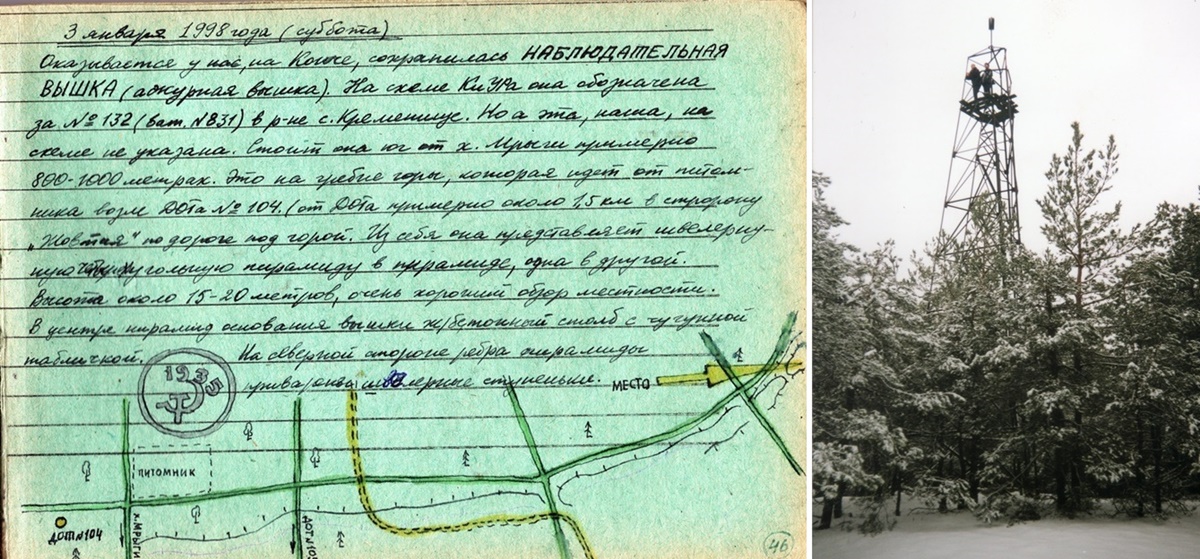 3 января 1998 года (суббота)
Оказывается у нас, на Конче, сохранилась НАБЛЮДАТЕЛЬНАЯ
ВЫШКА (ажурная вышка). На схеме КиУРа она обозначена
за №132 (бат. №831) в р-не с. Кременище. Но а эта, наша, на
схеме не указана. Стоит она юг от х. Мрыги примерно
800-1000 метрах. Это на гребне горы, которая идет от питом-
ника возле ДОТа №104. (от ДОТа примерно около 1,5 км в сторорону
„Жовтня" по дороге под горой. Из себя она представляет швелерну-
ную четырхугольную пирамиду в пирамиде, одна в другой.
Высота около 15-20 метров, очень хороший обзор местности.
В центре пирамид основания вышки ж/бетонный столб с чугунной
табличкой. На северной стороне ребра пирамиды
приварены швелерные ступеньки.
МЕСТО
1935
ПИТОМНИК
ДОТ №104
х. МРЫГИ
ДОТ №10
46